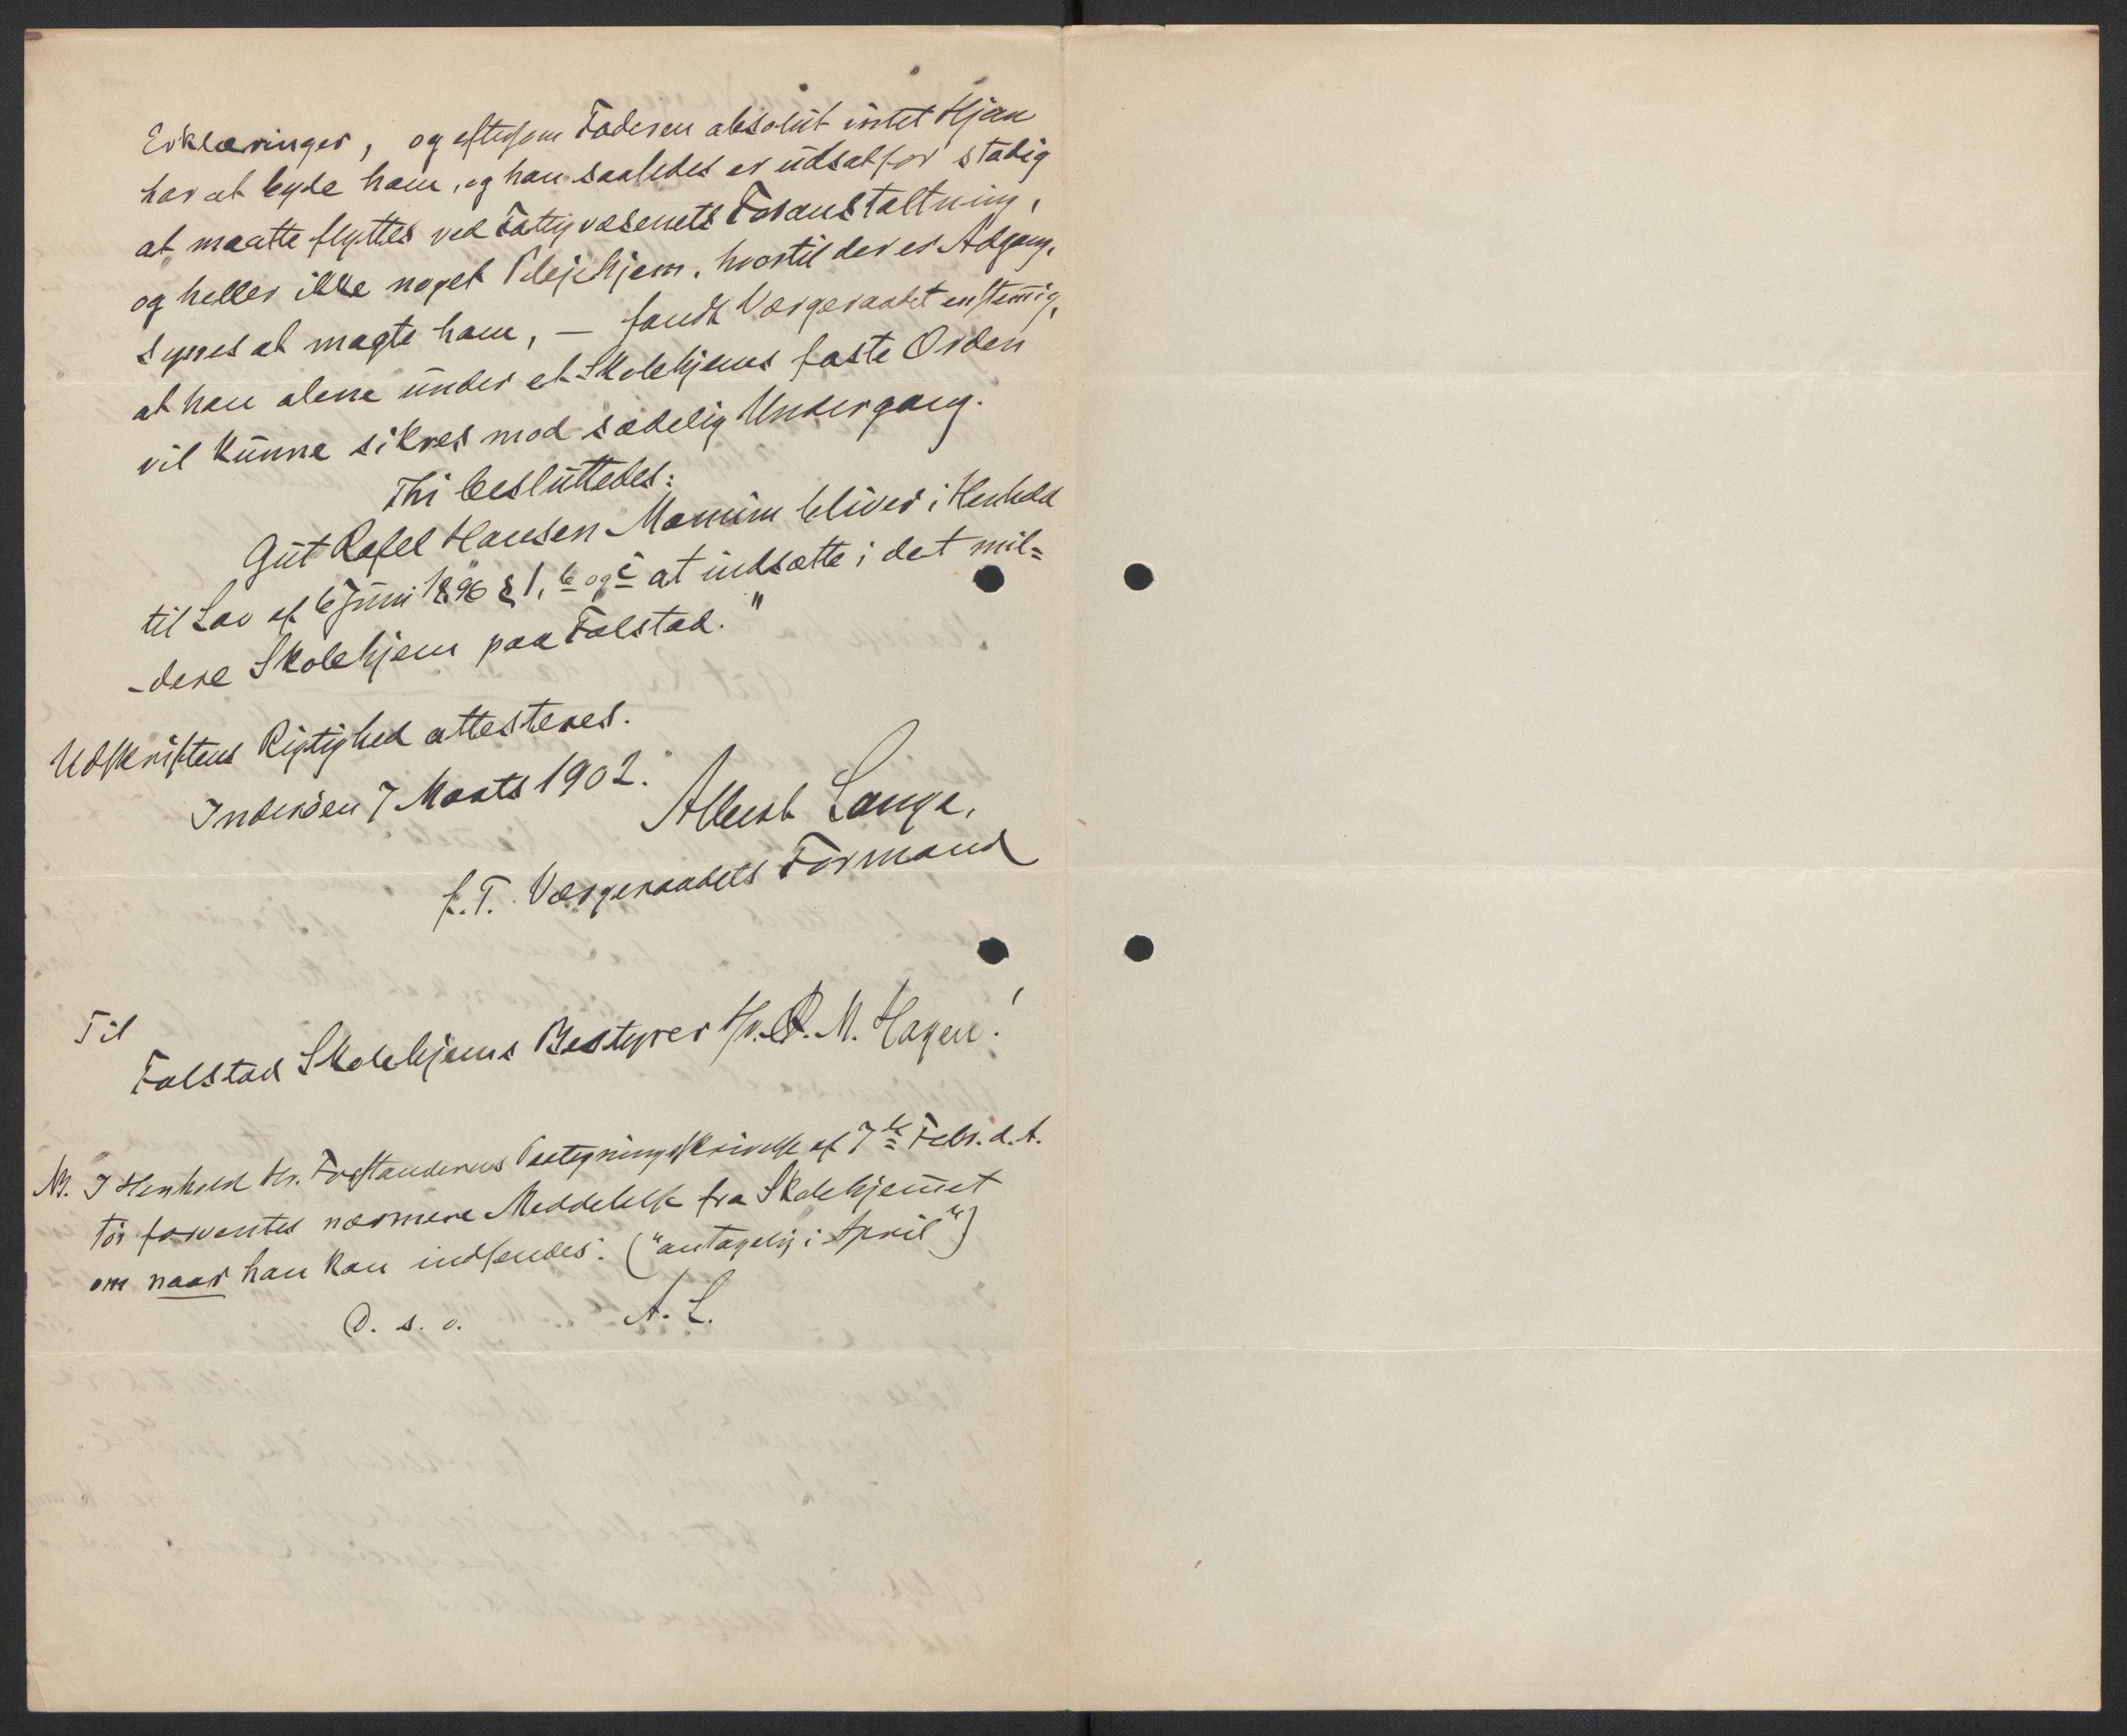 Erklæringer, og eftersom Faderen absolut intet Hjem
har at byde ham, og han saaledes er udsat for stadig
at maatte flyttes ved Fattigvæsenets Foranstaltning,
og heller ikke noget Plejehjem, hvortil der er Adgang,
synes at magte ham, — fandt Værgeraadet enstemmig,
at han alene under et Skolehjems faste Orden
vil kunne sikres mod sædelig Undergang.
Thi besluttedes:
Gut Rafel Hansen Momium bliver i Henhold
til Lov af 6 Juni 1896 § 1, b og c at indsætte i det mil=
-dere Skolehjem paa Falstad."
Udskriftens Rigtighed attesteres.
Inderöen 7 Marts 1902.
Albert Lange,
f. T. Værgeraadets Formand
Til
Falstad Skolehjems Bestyrer Hr. O. M. Hagen!
NB. I Henhold Hr. Forstanderens Paategningsskrivelse af 7de Febr. d. A.
tör forventes nærmere Meddelelse fra Skolehjemmet
om naar han kan indsendes. ("antagelig i April")
D. s. o. A. L.